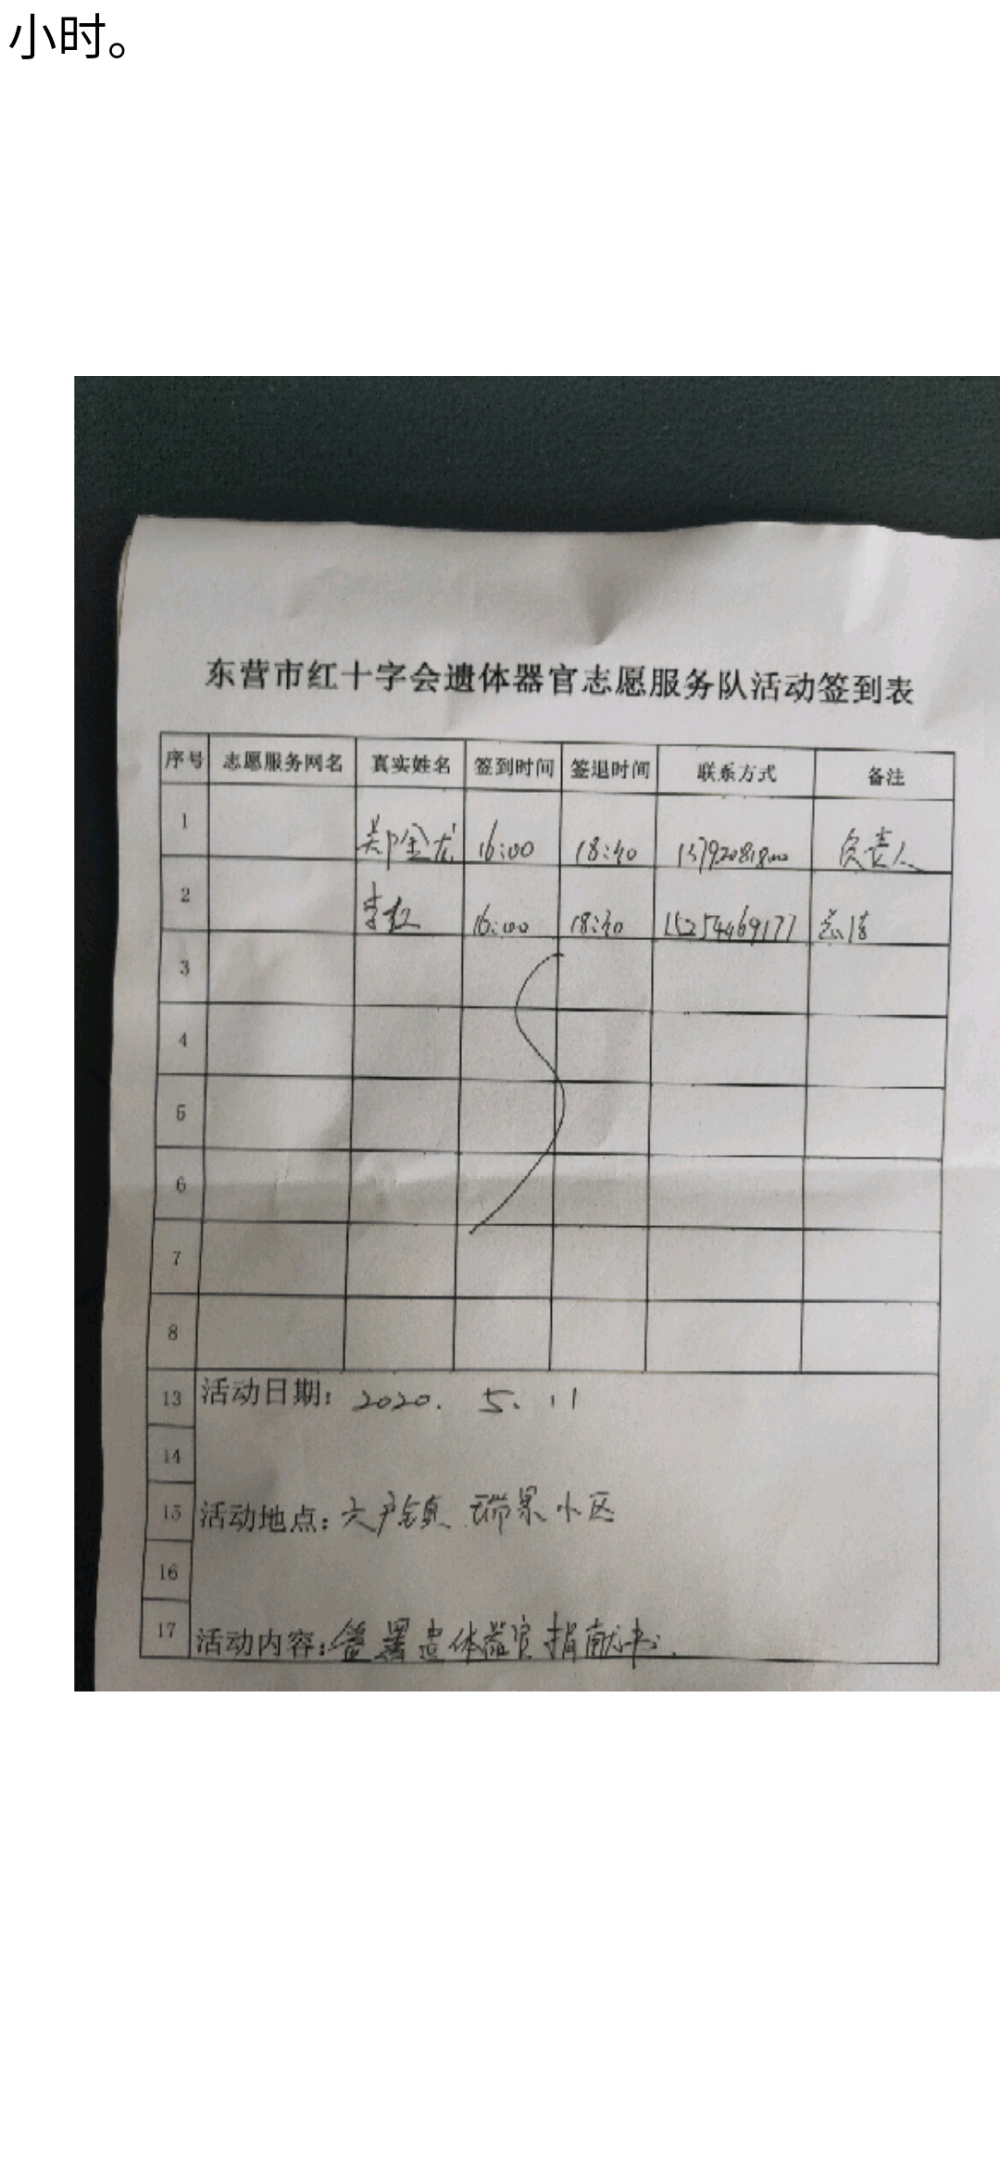 小时。
东营市红十字会遗体器官志愿服务队活动签到表
序号 志愿服务网名 真实姓名 签到时间 签退时间 联系方式 备注
1 郑金龙 16:00 18:40 负责人
2 李红 16:00 18:40 15254469177
3
4
5
6
7
8
13 活动日期: 2020. 5. 11
14
15 活动地点: 六户镇 瑞景小区
16
17 活动内容: 签署遗体器官捐献书.